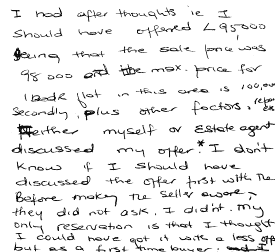 I had after thoughts ie I
should have offered £95,000
seeing that the sale price was
98 000 and the max. price for
1 bedr flat in this area is 100,000
secondly, plus other factors,
Neither myself or Estate agent
discussed my offer. * I don't
know if I should have
discussed the offer first with
Before making the seller aware,
they did not ask. I didnt. My
only reservation is that I thought
I could have got it with a less offer
but as a first time buyer